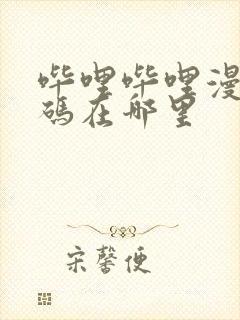 哔哩哔哩漫
碼在哪里
宋馨便